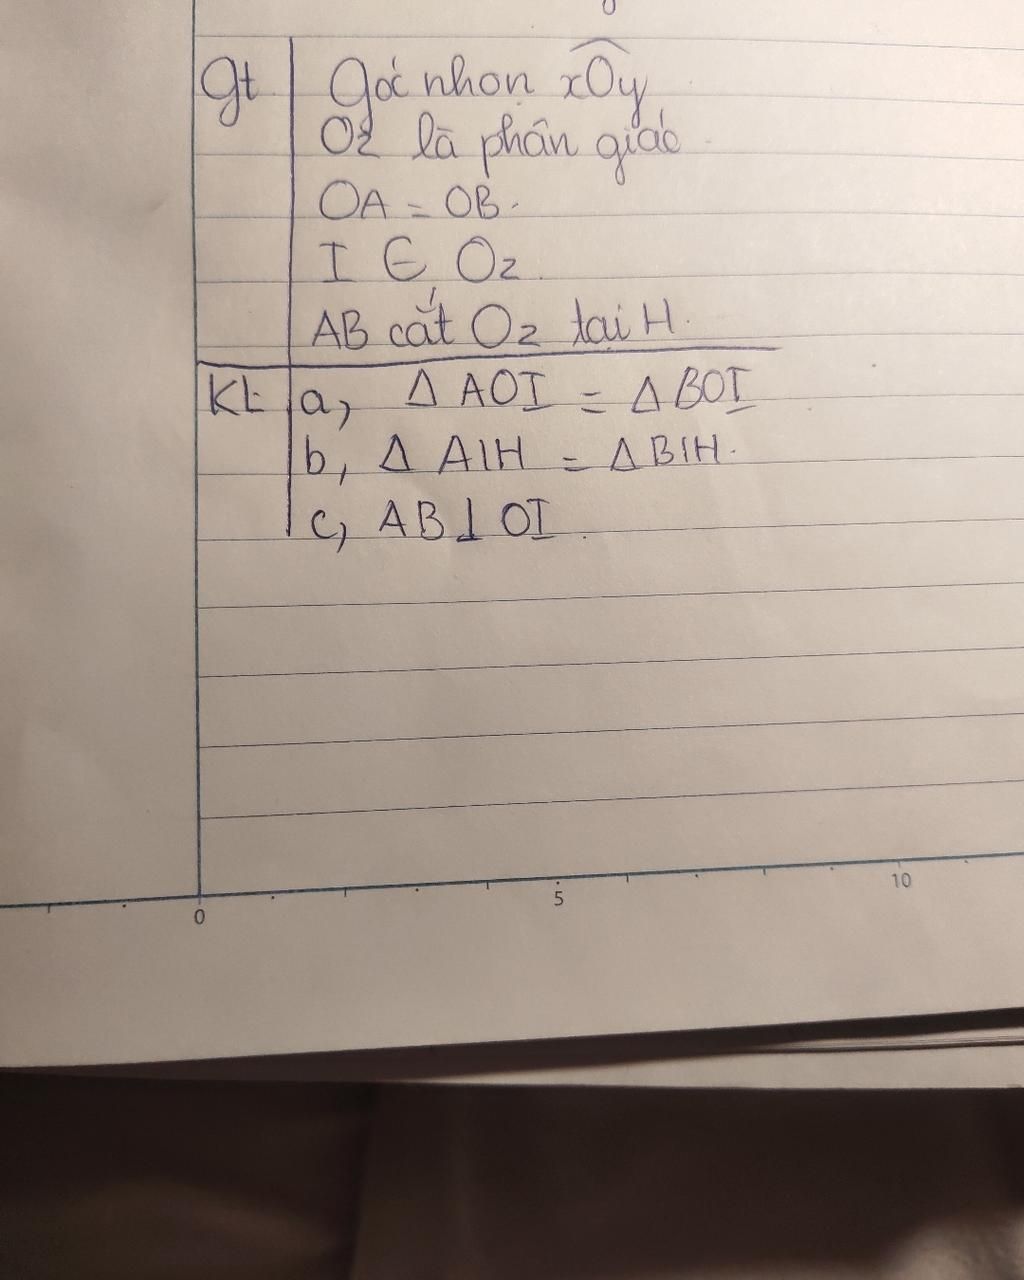 Gt Góc nhọn xOy
Oz là phân giác.
OA = OB.
I ∈ Oz.
AB cắt Oz tại H.
Kt a, Δ AOI = Δ BOI
b, Δ AIH = Δ BIH.
c, AB ⊥ OI.
0 5 10